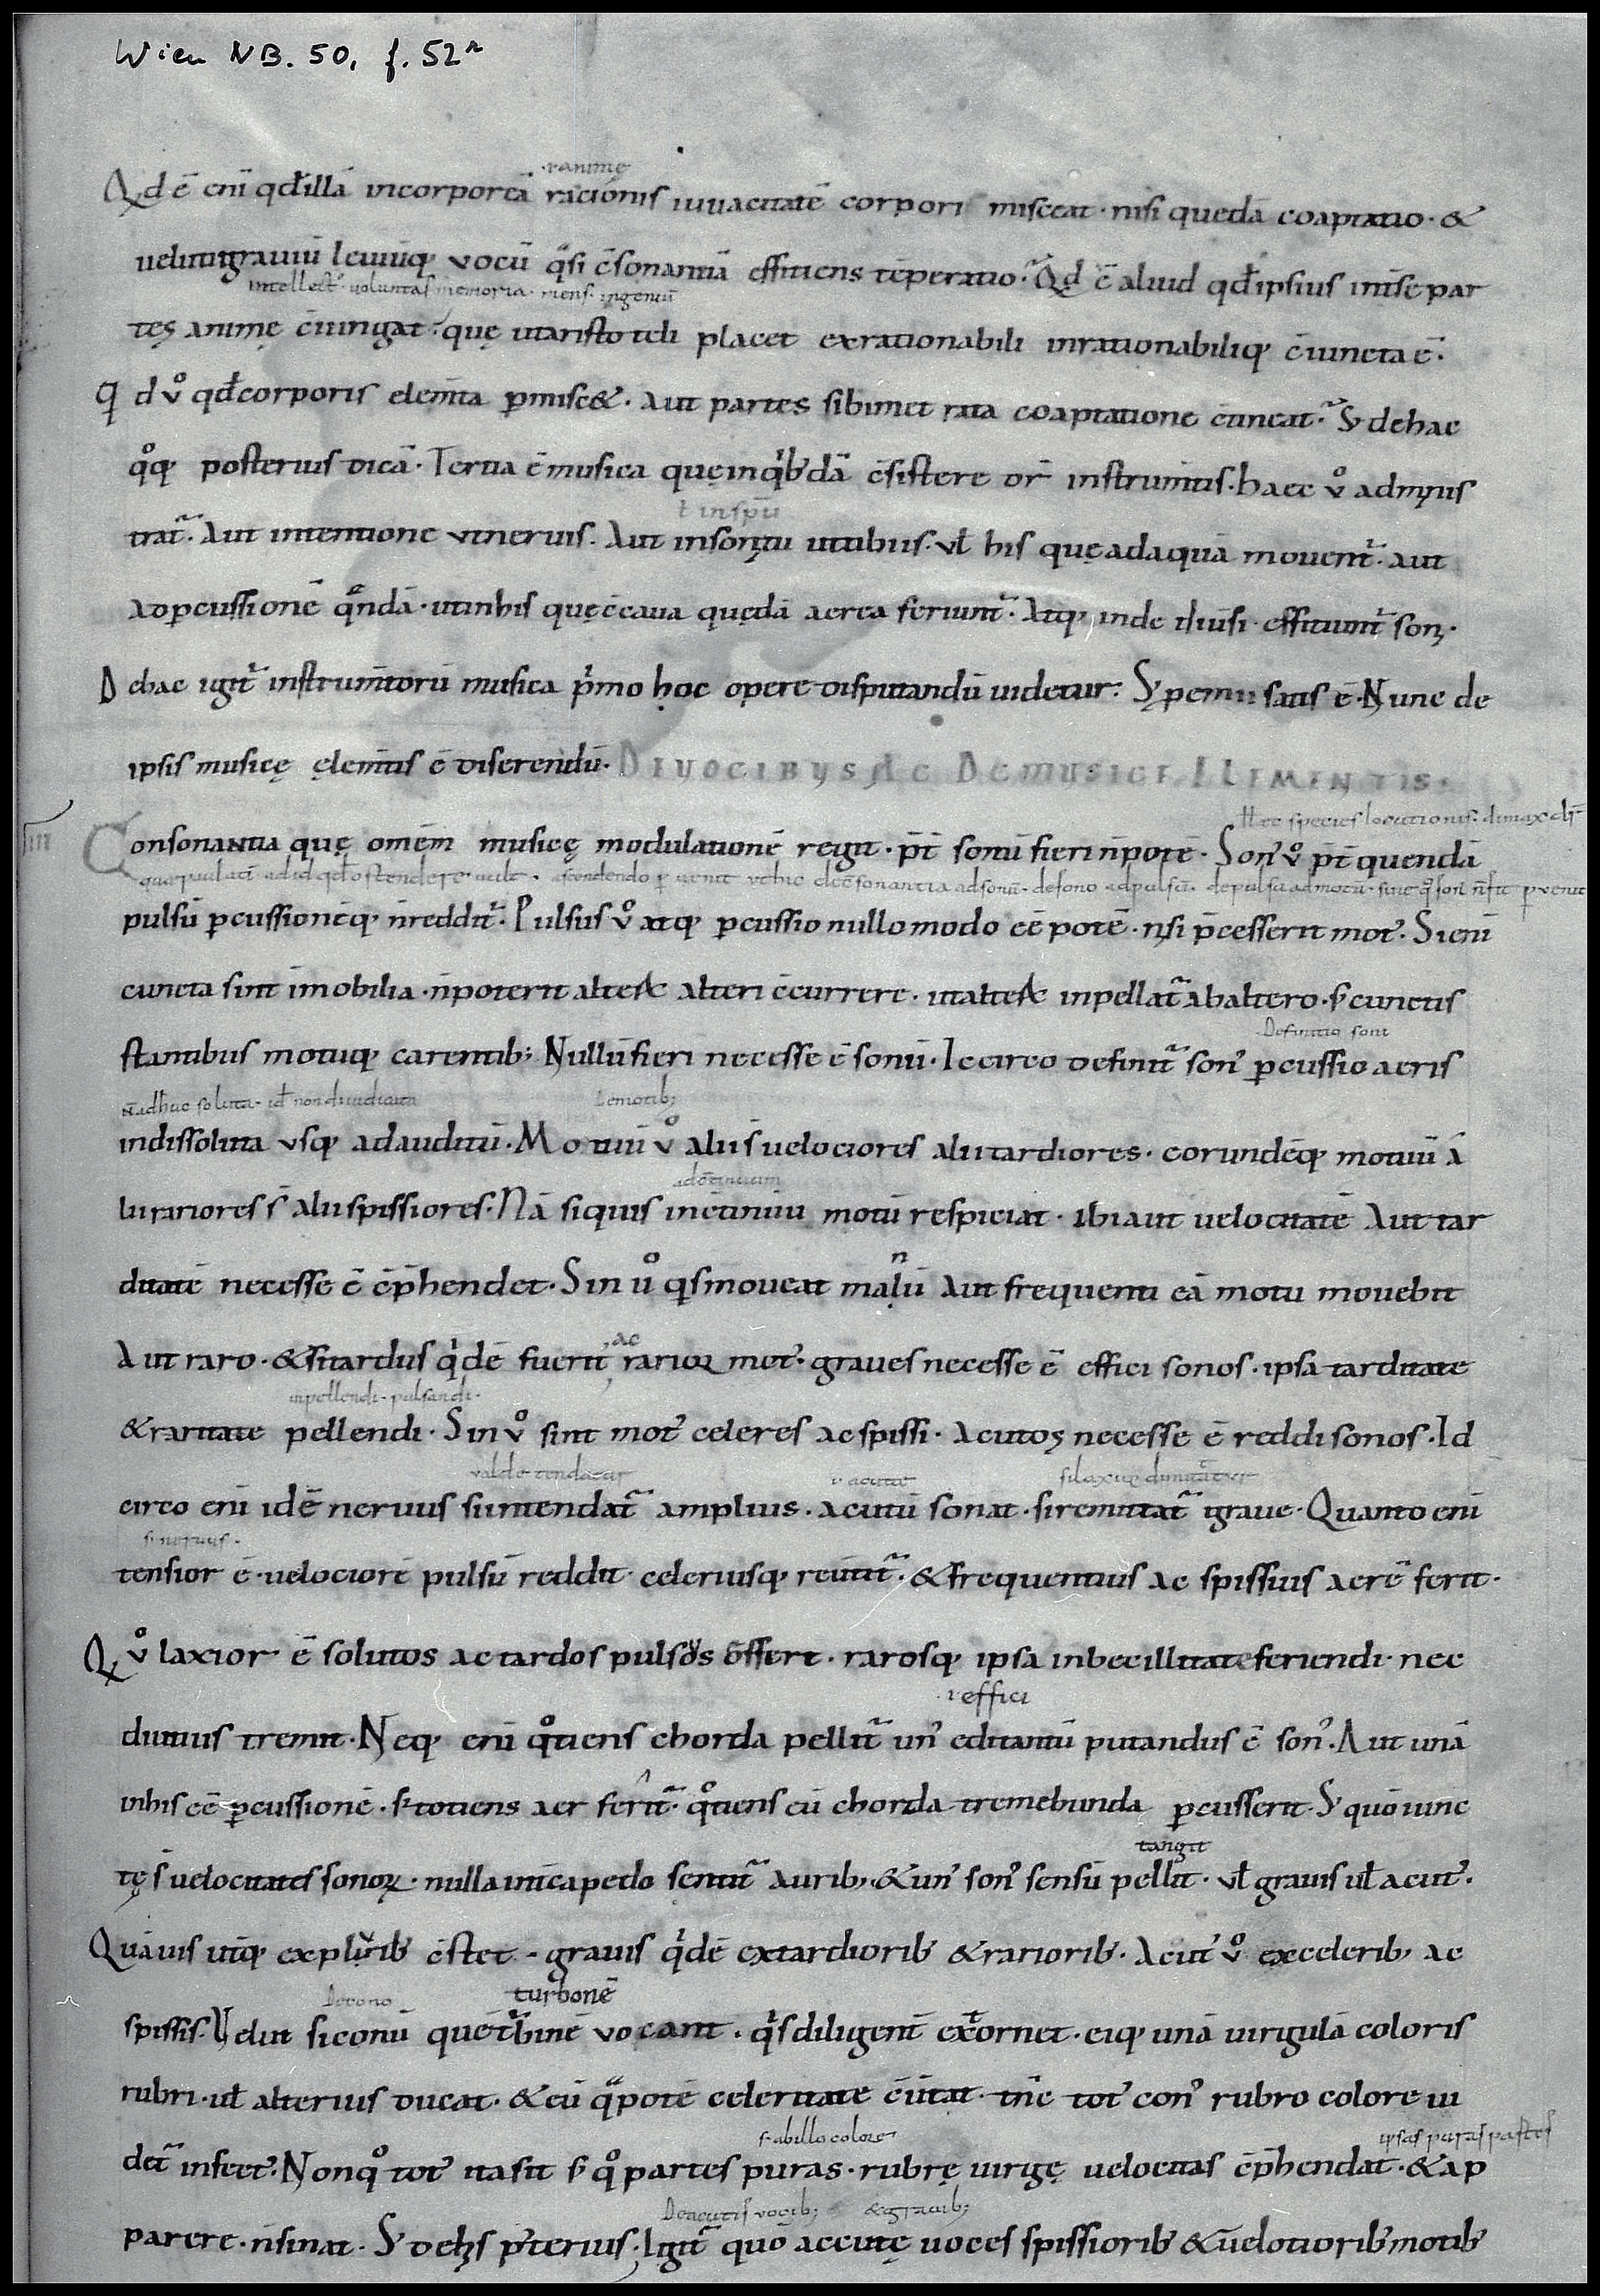 Wien NB. 50, f. 52r
.i. animę
Qd ē eni qđ illā incorporeā racionis uiuacitatē corpori misceat · nisi quedā coaptatio · &
ueluti grauiū leuiūq; vocū q̄si c̄sonantiā efficiens tēperatio. Qd ē aliud qđ ipsius int̄ se par
intellect᷒ · voluntas memoria · mens · ingeniū
tes animę c̄iungat · quę ut aristoteli placet ex rationabili inrationabiliq; c̄iuncta ē.
qd v̊ qđ corporis elem̄ta p̱misc& · Aut partes sibimet rata coaptatione c̄tineat. S; de hac
q̊q; posterius dicā · Tertia ē musica quę in q'bdā c̄sistere dr̄ instrum̄tis · haec v̊ adminis
ł in spū
trat᷑. Aut intentione vt neruis. Aut in spiritu ut tibiis · vł his quę ad aquā mouent᷑ · aut
ad p̱cussionē q̄ndā · ut in his quę c̄caua quędā aerea feriunt᷑. Atq; inde diuersi efficiunt᷑ soni.
De hac igit᷑ instrum̄torū musica p'mo hoc opere disputandū uidetur. S; p̱emii satis ē. Nunc de
ipsis musicę elem̄tis ē diserendū. DE VOCIBVS AC DE MVSICE ELEMENTIS.
Haec species locutionis · climax dr̄
IIII Consonantia quę omēm musicę modulationē regit · pt̄ sonū fieri n̄ potē · Son᷒ v̊ pt̄ quendā
pulsū p̱cussionēq; n̄ reddit᷑. Pulsus v̊ atq; p̱cussio nullo modo eē potē · nisi p̄cesserit mot᷒. Si eni
cuncta sint imobilia · n̄ poterit alterū alteri c̄currere · ut alterū inpellat᷑ ab altero · s; cunctis
Definitio soni
stantibus motuq; carentib; Nullū fieri necesse ē sonū · Iccirco definit᷑ son᷒ p̱cussio aeris
n̄ adhuc soluta · id non diiudicata
De motib;
indissoluta vsq; ad auditū. Motuū v̊ alii s̄ uelociores alii tardiores · eorundēq; motuū a
ad c̄tinuum
lii rariores s̄ alii spissiores. Nā si quis in c̄tinuū motū respiciat · ibi aut uelocitatē Aut tar
n
ditatē necesse ē c̄p̄hendet. Sin ů q's moueat malū Aut frequenti eā motu mouebit
ac
Aut raro · & si tardus q'dē fuerit rarior mot᷒ · graues necesse ē effici sonos · ipsa tarditate
inpellendi · pulsandi ·
& raritate pellendi · Sin v̊ sint mot᷒ celeres ac spissi · Acutos necesse ē reddi sonos. Id
valde tendatur
si laxius dimittatur
circo eni idē neruus si intendat᷑ amplius · acutū sonat · si remittat᷑ graue · Quanto eni
s; neruus ·
tensior ē · uelociorē pulsū reddit celeriusq; reūtit᷑ · & frequentius ac spissius aerē ferit.
Q v̊ laxior ē solutos ac tardos pulsus offert · rarosq; ipsa inbecillitate feriendi · nec
ł effici
diutius tremit. Neq; eni q̊tiens chorda pellit᷑ un᷒ edi tantū putandus ē son᷒. Aut unā
in his eē p̱cussionē · s; totiens aer ferit᷑ · q̊tiens eū chorda tremebunda p̱cusserit. S; quō iunc
tangit
tę s̄ uelocitates sonor̄ · nulla int̄capedo sentit᷑ aurib; & un᷒ son᷒ sensū pellit · vł grauis uł acut᷒.
Quāuis utq; ex plurib c̄stet · grauis q'dē ex tardiorib & rariorib. Acut᷒ v̊ ex celerib; ac
De cono
turbonē
spissis. Velut si conū quē turbinē vocant · q's diligent᷑ extornet · eiq; unā uirgulā coloris
rubri · uł alterius ducat · & eū q̄ potē celeritate c̄uertat · tn̄c tot᷒ con᷒ rubro colore ui
s; ab illo colore
ipsas puras partes
det᷑ infect᷒. Non q̊ tot᷒ ita sit s; q̊ partes puras · rubrę uirgę uelocitas c̄p̄hendat · & ap
De acutis vocib; & grauib;
parere · n̄ sinat. S; de his posterius. Igit᷑ quō accutę uoces spissiorib & uelotiorib motib